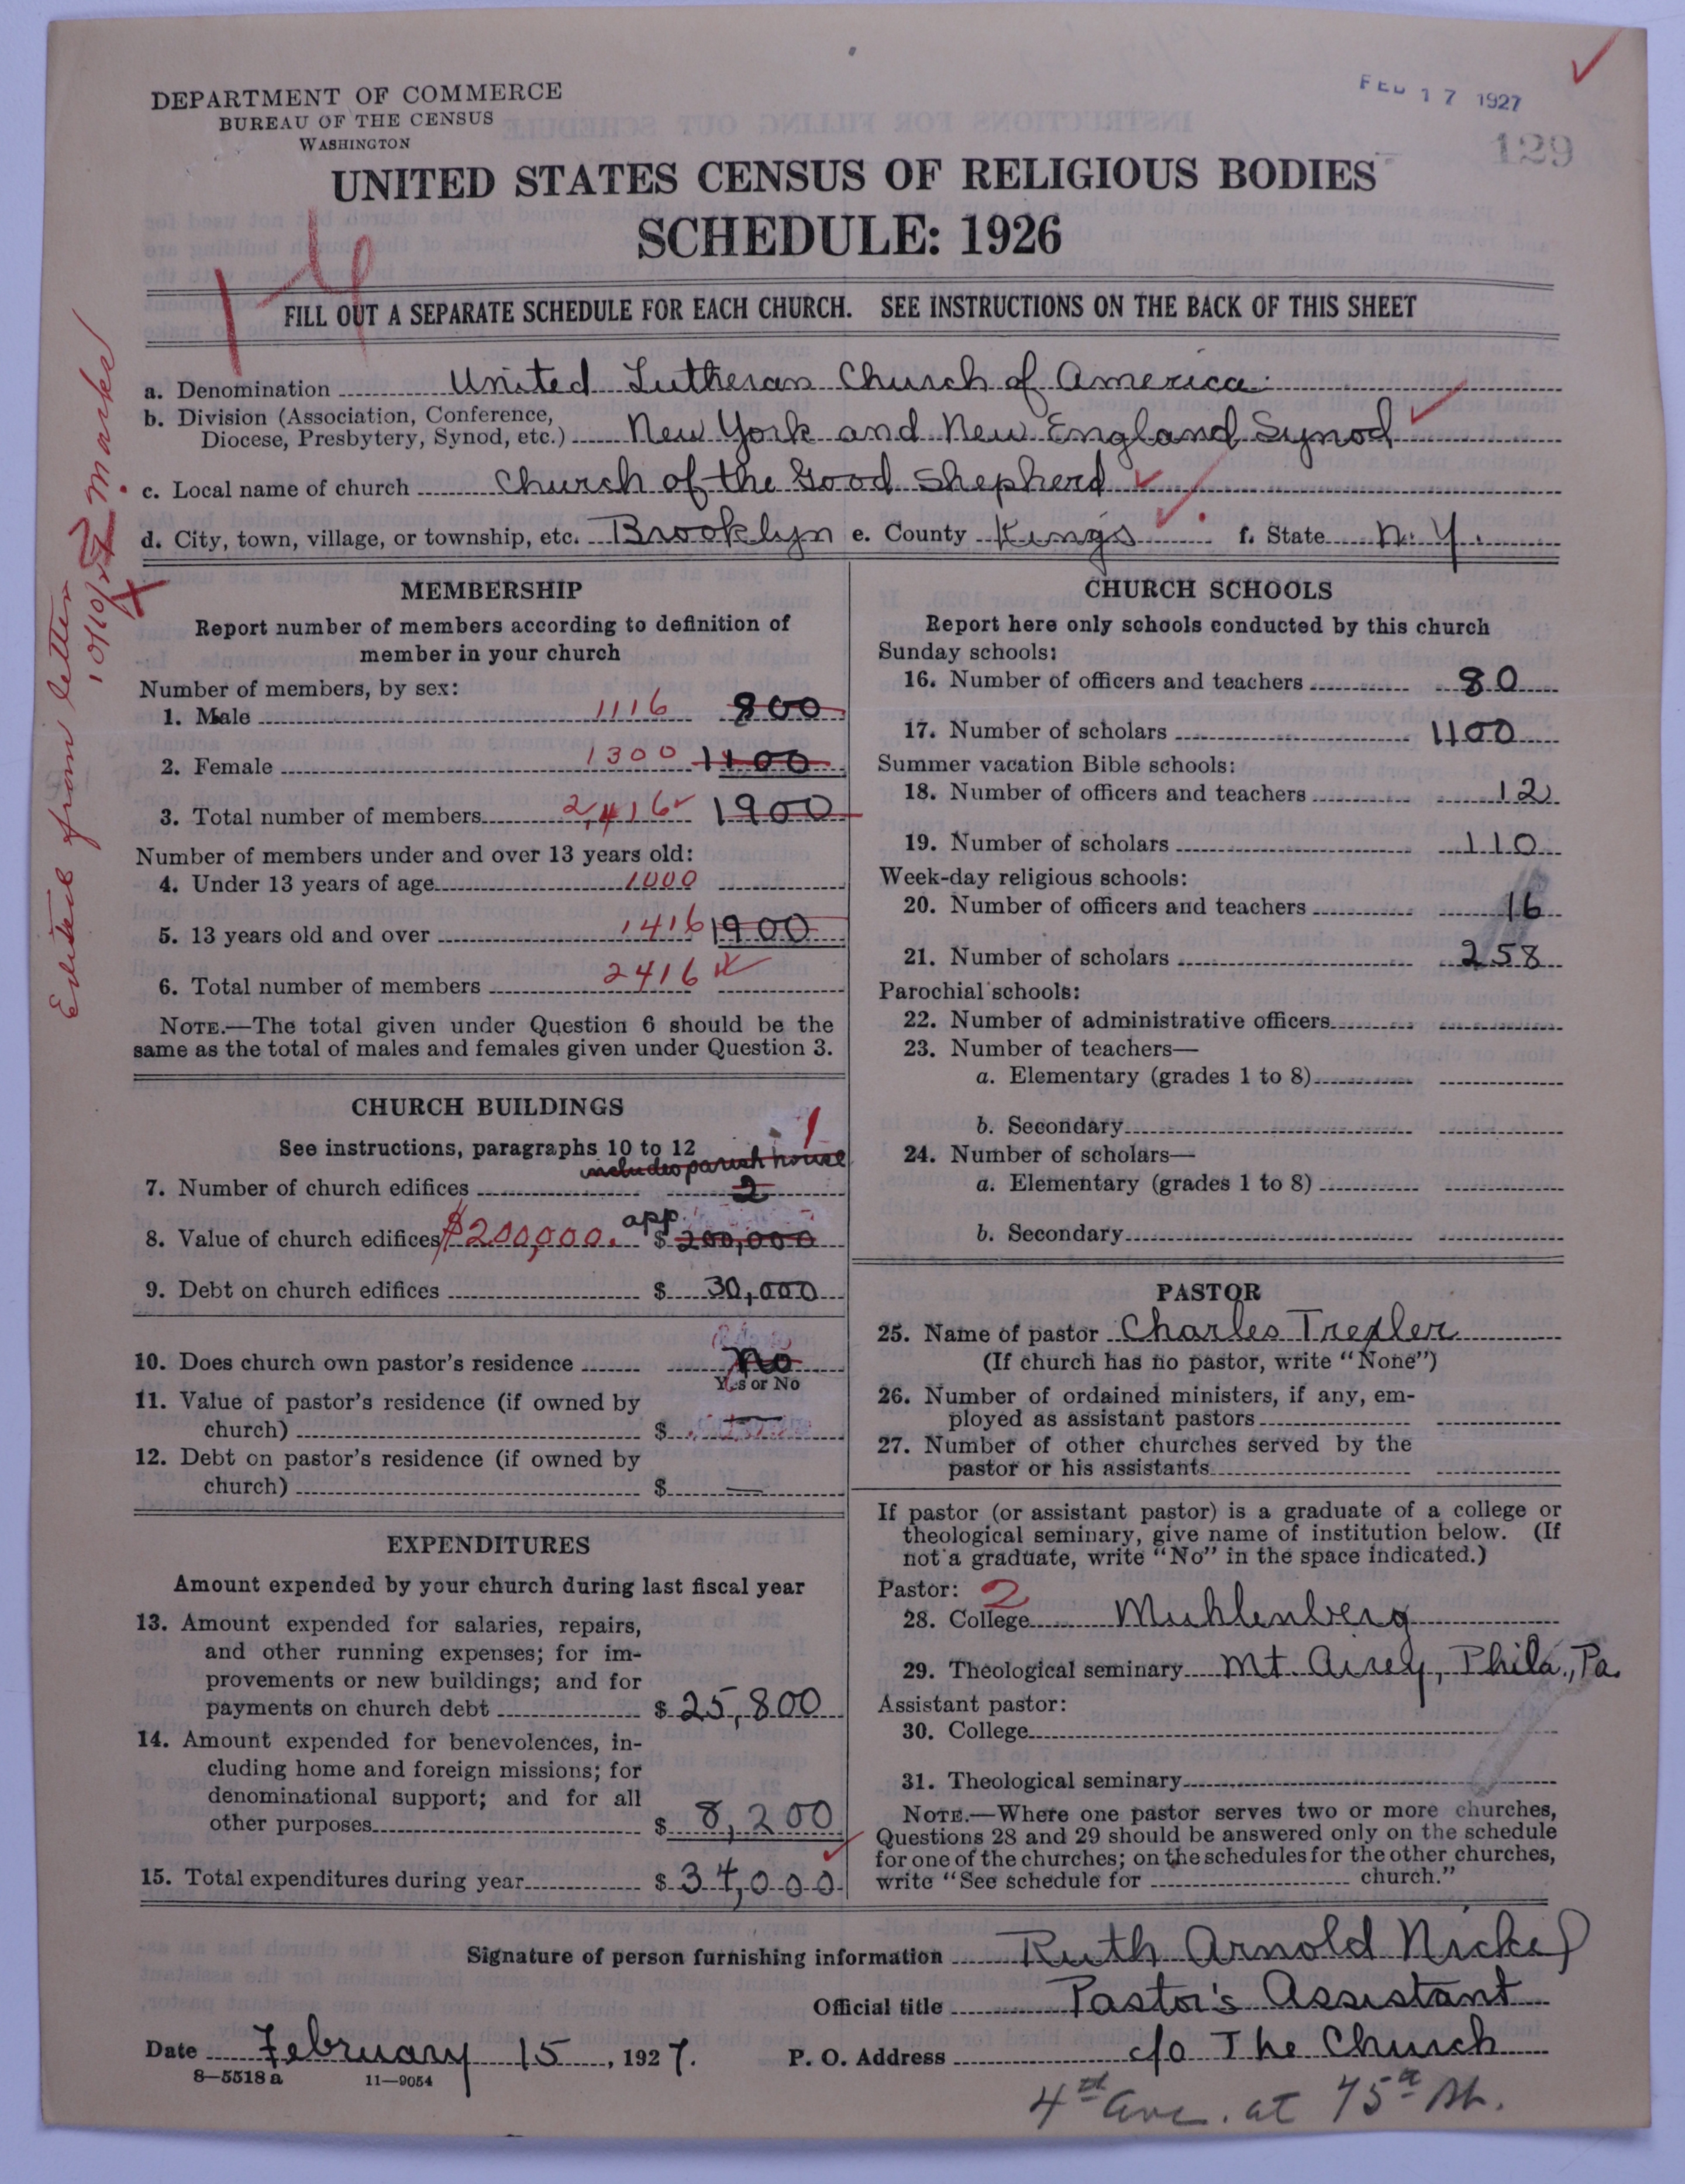 DEPARTMENT OF COMMERCE
BUREAU OF THE CENSUS
WASHINGTON
FEB 17 1927
129
UNITED STATES CENSUS OF RELIGIOUS BODIES
SCHEDULE: 1926
FILL OUT A SEPARATE SCHEDULE FOR EACH CHURCH. SEE INSTRUCTIONS ON THE BACK OF THIS SHEET
a. Denomination United Lutheran Church of America
b. Division (Association, Conference,
Diocese, Presbytery, Synod, etc.) New York and New England Synod
c. Local name of church Church of the Good Shepherd
d. City, town, village, or township, etc. Brooklyn e. County Kings f. State N. Y.
from letter
MEMBERSHIP
Report number of members according to definition of
member in your church
Number of members, by sex:
1. Male 1116 800
2. Female 1300 1100
3. Total number of members 2,416 1900
Number of members under and over 13 years old:
4. Under 13 years of age 1000
5. 13 years old and over 1416 1900
6. Total number of members 2416
NOTE.—The total given under Question 6 should be the
same as the total of males and females given under Question 3.
CHURCH BUILDINGS
See instructions, paragraphs 10 to 12
includes parish house 1
7. Number of church edifices 2
8. Value of church edifices $200,000. app. $ 200,000
9. Debt on church edifices $ 30,000
10. Does church own pastor's residence No
Yes or No
11. Value of pastor's residence (if owned by
church) $ —
12. Debt on pastor's residence (if owned by
church) $ —
EXPENDITURES
Amount expended by your church during last fiscal year
13. Amount expended for salaries, repairs,
and other running expenses; for im-
provements or new buildings; and for
payments on church debt $ 25,800
14. Amount expended for benevolences, in-
cluding home and foreign missions; for
denominational support; and for all
other purposes $ 8,200
15. Total expenditures during year $ 34,000
CHURCH SCHOOLS
Report here only schools conducted by this church
Sunday schools:
16. Number of officers and teachers 80
17. Number of scholars 1100
Summer vacation Bible schools:
18. Number of officers and teachers 12
19. Number of scholars 110
Week-day religious schools:
20. Number of officers and teachers 16
21. Number of scholars 258
Parochial schools:
22. Number of administrative officers
23. Number of teachers—
a. Elementary (grades 1 to 8)
b. Secondary
24. Number of scholars—
a. Elementary (grades 1 to 8)
b. Secondary
PASTOR
25. Name of pastor Charles Trexler
(If church has no pastor, write "None")
26. Number of ordained ministers, if any, em-
ployed as assistant pastors
27. Number of other churches served by the
pastor or his assistants
If pastor (or assistant pastor) is a graduate of a college or
theological seminary, give name of institution below. (If
not a graduate, write "No" in the space indicated.)
Pastor: 2
28. College Muhlenberg
29. Theological seminary Mt Airey, Phila., Pa.
Assistant pastor:
30. College
31. Theological seminary
NOTE.—Where one pastor serves two or more churches,
Questions 28 and 29 should be answered only on the schedule
for one of the churches; on the schedules for the other churches,
write "See schedule for church."
Signature of person furnishing information Ruth Arnold Nickel
Official title Pastor's Assistant
Date February 15, 1927. P. O. Address c/o The Church
8—5518a 11—9054
4th Ave. at 75th St.